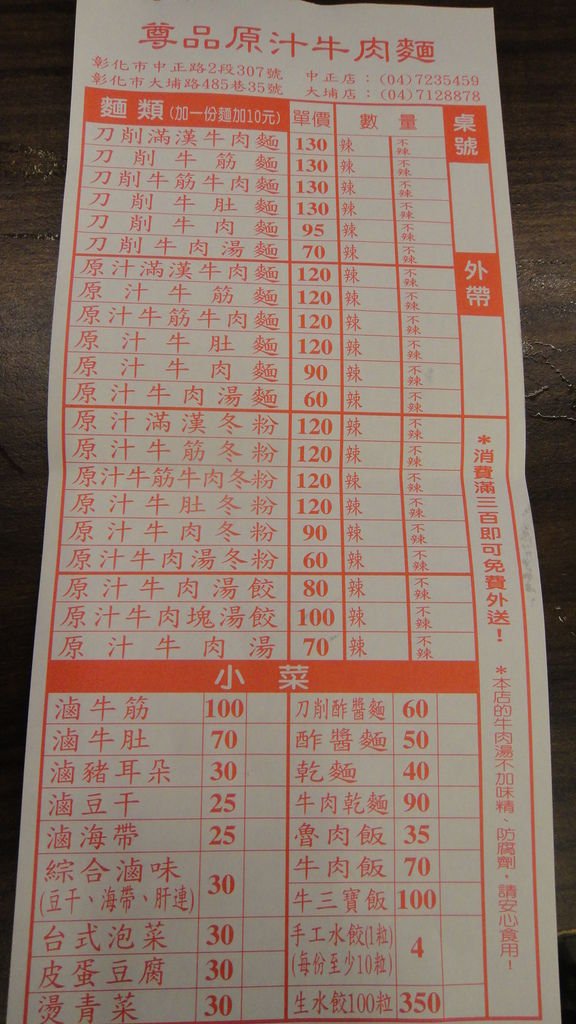 尊品原汁牛肉麵
彰化市中正路2段307號 中正店：(04)7235459
彰化市大埔路485巷35號 大埔店：(04)7128878
麵類(加一份麵加10元) 單價 數量 桌號
刀削滿漢牛肉麵 130 辣 不辣
刀削牛筋麵 130 辣 不辣
刀削牛筋牛肉麵 130 辣 不辣
刀削牛肚麵 130 辣 不辣
刀削牛肉麵 95 辣 不辣
刀削牛肉湯麵 70 辣 不辣
外帶
原汁滿漢牛肉麵 120 辣 不辣
原汁牛筋麵 120 辣 不辣
原汁牛筋牛肉麵 120 辣 不辣
原汁牛肚麵 120 辣 不辣
原汁牛肉麵 90 辣 不辣
原汁牛肉湯麵 60 辣 不辣
原汁滿漢冬粉 120 辣 不辣
原汁牛筋冬粉 120 辣 不辣
原汁牛筋牛肉冬粉 120 辣 不辣
原汁牛肚冬粉 120 辣 不辣
原汁牛肉冬粉 90 辣 不辣
原汁牛肉湯冬粉 60 辣 不辣
原汁牛肉湯餃 80 辣 不辣
原汁牛肉塊湯餃 100 辣 不辣
原汁牛肉湯 70 辣 不辣
＊消費滿三百即可免費外送！
＊本店的牛肉湯不加味精、防腐劑，請安心食用！
小菜
滷牛筋 100 刀削酢醬麵 60
滷牛肚 70 酢醬麵 50
滷豬耳朵 30 乾麵 40
滷豆干 25 牛肉乾麵 90
滷海帶 25 魯肉飯 35
綜合滷味 30 牛肉飯 70
(豆干、海帶、肝連) 牛三寶飯 100
台式泡菜 30 手工水餃(1粒) 4
皮蛋豆腐 30 (每份至少10粒)
燙青菜 30 生水餃100粒 350